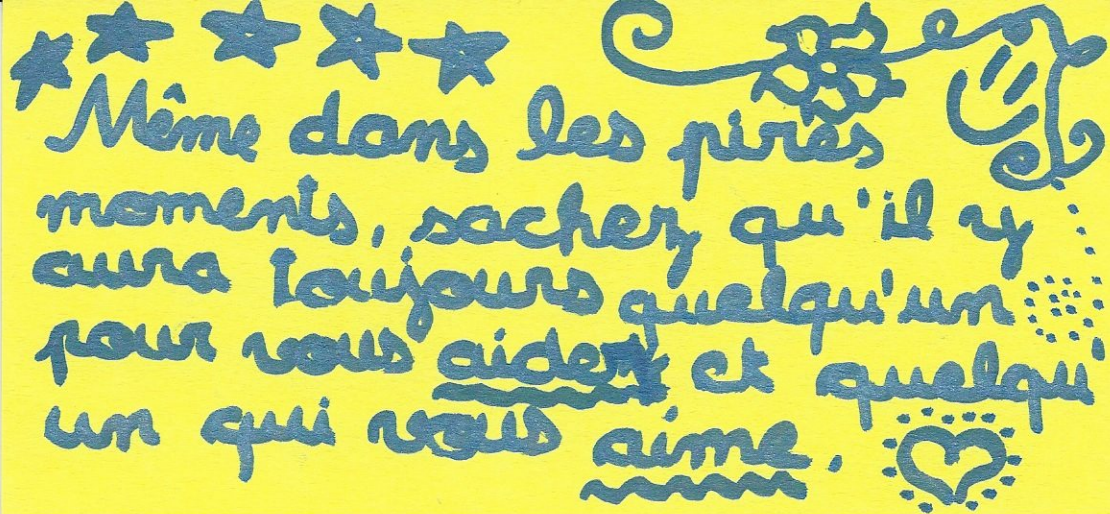 Même dans les pires
moments, sachez qu'il y
aura toujours quelqu'un
pour vous aider et quelqu'
un qui vous aime.